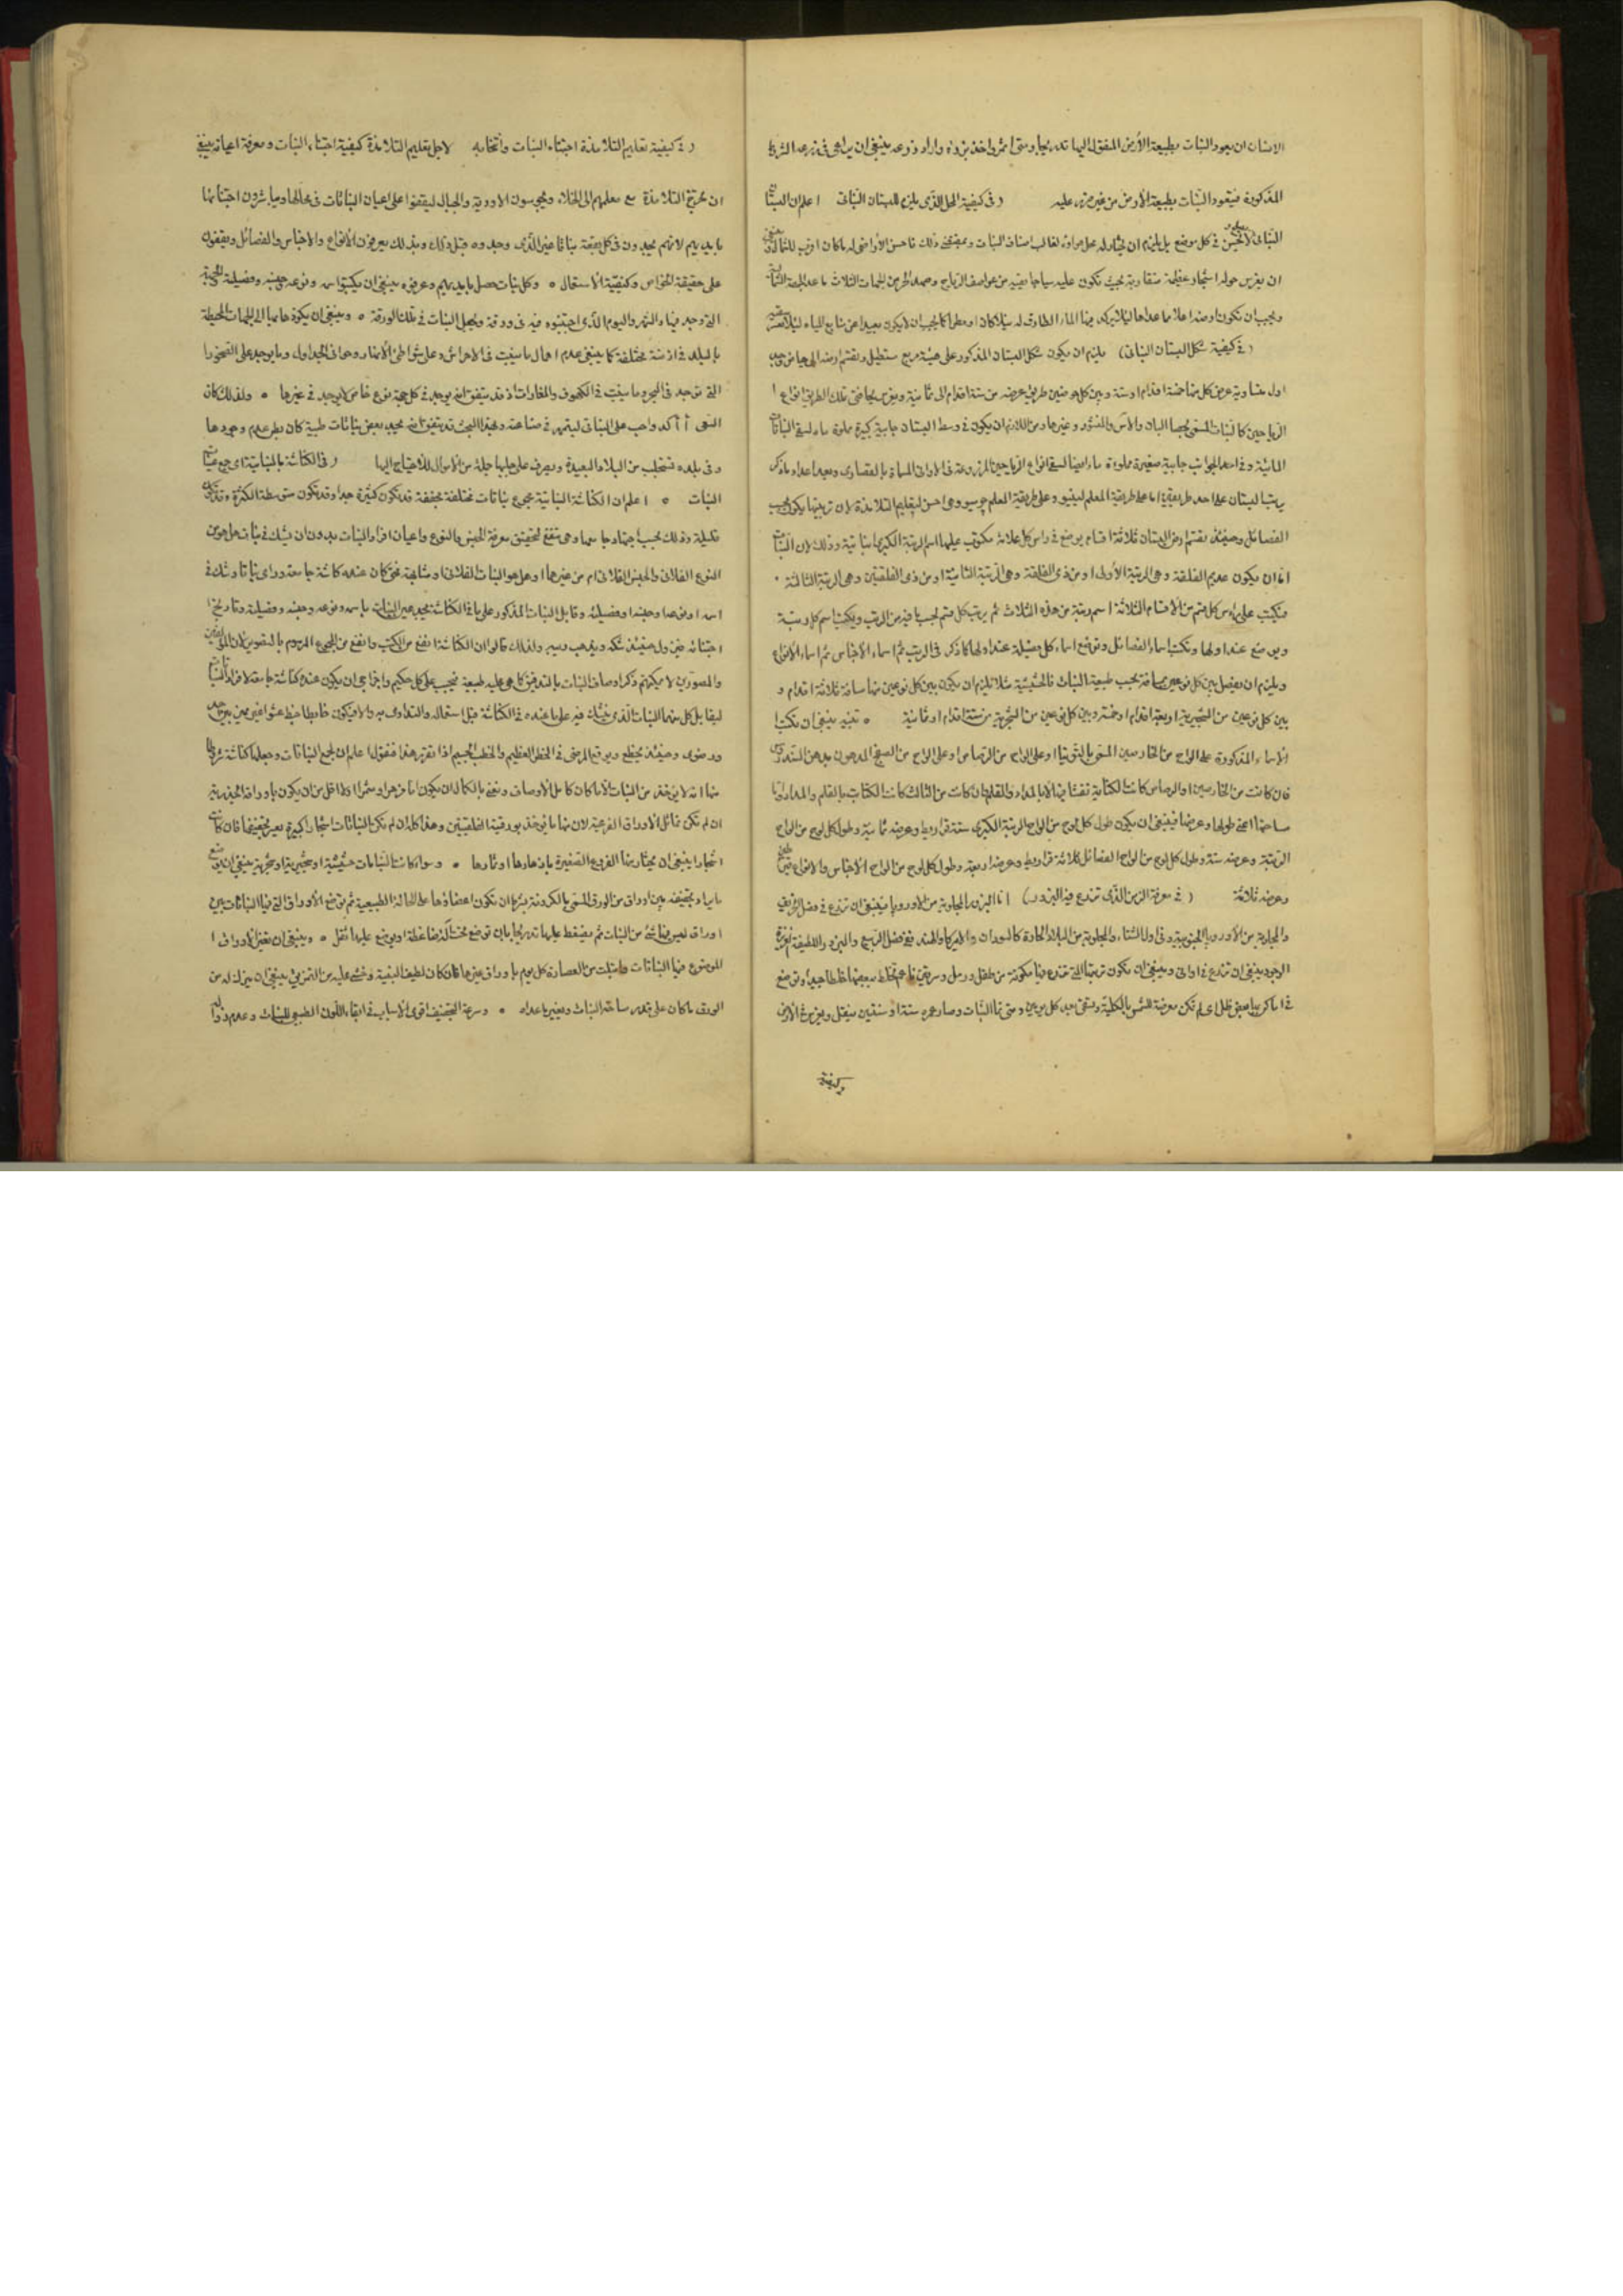 الانسان ان يعود النبات بطبيعة الأرض المنقول اليها تدريجا ومتى اثمر واخذ بزره واراد زرعه ينبغى ان يراعى فى زرعه الشروط
المذكورة فيتعود النبات بطبيعة الأرض من غير ضرر عليه (فى كيفية المحل الذى يلزم للبستان النباتى اعلم ان البستان
النباتى لا يحسن فى كل موضع بل يلزم ان يختار له محل موافق لغالب اصناف النبات فاحسن الأراضى له ما كان اقرب للشمال
ان يغرس حوله اشجار عظيمة متقاربة بحيث تكون عليه سياجا يقيه من عواصف الرياح من الجهات الثلاث ما عدا الجهة
ويجب ان تكون ارضه اعلا مما عداها لئلا يركد فيها الماء الطارق له سيلا كان او مطرا كما يجب ان لا يكون بعيدا عن منابع المياه
(فى كيفية شكل البستان النباتى) يلزم ان يكون شكل البستان المذكور على هيئة مربع مستطيل وتقسم ارضه الى حياض
اول متساوية عرض كل منها خمسة اقدام او ستة وبين كل حوضين طريق عرضه من ستة اقدام الى ثمانية ويغرس بحافتى تلك الطريق انواع
الرياحين كالنبات المسمى بحصا البان والآس والمنثور وغيرها ومن اللازم ان يكون فى وسط البستان جابية كبيرة مملوة ماء لسقى النباتات
المائية وفى احد الجوانب جابية صغيرة مملوءة ماء ايضا لسقى انواع الرياحين المزروعة فى الاوانى المسماة بالقصارى وبعد اعداد ما ذكر
يرتب البستان على احد طريقتين اما على طريقة المعلم لينيو وعلى طريقة المعلم جوسيو وهى احسن لتعليم التلامذة لان ترتيبها يكون بحسب
الفصائل وحينئذ تقسم ارض البستان ثلاثة اقسام يوضع فى راس كل علامة مكتوب عليها اسم الرتبة الكبرى نباتية وذلك لان النبات
اما ان يكون عديم الفلقة وهى الرتبة الأولى او من ذى الفلقة وهى الرتبة الثانية او من ذى الفلقتين وهى الرتبة الثالثة
فيكتب على راس كل قسم من الأقسام الثلاثة اسم رتبة من هذه الثلاث ثم يرتب كل قسم بحسب ما فيه من الرتب ويكتب اسم كل رتبة
ويوضع عند اولها وتكتب اسماء الفصائل وتوضع اسماء كل فصيلة عند اولها كما ذكر فى الرتب ثم اسماء الأجناس ثم اسماء الأنواع
ويلزم ان يفصل بين كل نوعين بمسافة بحسب طبيعة النبات فالحشيشية مثلا يلزم ان يكون بين كل نوعين منها مسافة ثلاثة اقدام و
بين كل نوعين من الشجيرية اربعة اقدام او خمسة وبين كل نوعين من الشجرية من ستة اقدام او ثمانية تنبيه ينبغى ان تكتب
الأسماء المذكورة على الواح من الخارصين المسمى بالتوتيا او على الواح من الرصاص او على الواح من الصفيح المدهون بدهن
فان كانت من الخارصين او الرصاص كانت الكتابة نقشا فيها لا بالمداد والقلم وان كانت من الثالث كانت الكتابة بالقلم والمداد واما
مساحتها اعنى طولها وعرضها فينبغى ان يكون طول كل لوح من الواح الرتبة الكبرى ستة قراريط وعرضه ثمانية وطول كل لوح من الواح
الرتبة وعرضه ستة وطول كل لوح من الواح الفصائل ثلاثة قراريط وعرضه اربعة وطول كل لوح من الواح الأجناس والأنواع
وعرضه ثلاثة (فى معرفة الزمن الذى تزرع فيه البزور) اما البزور المجلوبة من الاوروپا فينبغى ان تزرع فى فصل الخريف
والمجلوبة من الأوروپا الجنوبية فى اول الشتاء والمجلوبة من البلاد الحارة كالسودان والاميركا والهند فى فصل الربيع والبزور اللطيفة
الوجود ينبغى ان تزرع فى اوانى وينبغى ان تكون تربتها التى تزرع فيها مكونة من طفل ورمل وسرقين ناعم تخلط ببعضها خلطا جيدا وتوضع
فى اماكن بها بعض ظل اى لم تكن معرضة للشمس بالكلية وتسقى بعد كل يومين ومتى نما النبات وصار عمره سنة او سنتين ينقل ويغرس فى الأرض
وكيفية
(فى كيفية تعليم التلامذة اجتناء النبات وانتخابه لاجل تعليم التلامذة كيفية اجتناء النبات ومعرفة اعيانه ينبغى
ان تخرج التلامذة مع معلمهم الى الخلاء ويجوسون الاودية والجبال ليقفوا على اعيان النباتات فى محالها ويباشرون اجتنائها
بايديهم لانهم يجدون فى كل بقعة نباتا غير الذى وجدوه قبل ذلك وبذلك يعرفون الأنواع والأجناس والفصائل ويقفون
على حقيقة الخواص وكيفية الأستعمال وكل نبات حصل بايديهم وعرفوه ينبغى ان يكتبوا اسمه ونوعه وجنسه وفصيلته والجهة
التى وجد فيها والشهر واليوم الذى اجتنوه فيه فى ورقة ويجعل النبات فى تلك الورقة وينبغى ان يكون ذهابها الى الجهات المحيطة
بالبلد فى ازمنة مختلفة كما ينبغى عدم اهمال ما ينبت فى الاحراش وعلى شواطئ الأنهار وحوافى الجداول وما يوجد على الصخور
التى توجد فى البحر وما ينبت فى الكهوف والمغارات اذ قد يتفق انه يوجد فى كل جهة نوع خاص لا يوجد فى غيرها ولذلك كان
السعى آكد واجب على النباتى ليتمهر فى صناعته وبهذا البحث قد يتفق انه يجد بعض نباتات طبية كان يظن عدم وجودها
وفى بلده تستجلب من البلاد البعيدة ويصرف على جلبها جملة من الأموال للاحتياج اليها (فى الكناشة النباتية اى جميع
النبات اعلم ان الكناشة النباتية مجموع نباتات مختلفة مجففة قد تكون كثيرة جدا وقد تكون متوسطة الكثرة وقد تكون
قليلة وذلك بحسب اجتهاد جامعها وهى تنفع لتحقيق معرفة الجنس والنوع واعيان افراد النبات بدون ان يشك فى نبات هل هو من
النوع الفلانى والجنس الفلانى ام من غيرها او هل هو النبات الفلانى او مشابهه فمن كان عنده كناشة جامعة وراى نباتا وشك فى
اسمه او نوعه او جنسه او فصيلته وقابل النبات المذكور على ما فى الكناشة يجد عين النبات باسمه ونوعه وجنسه وفصيلته وتاريخ
اجتنائه فيزول حينئذ شكه ويذهب وهمه ولذلك قالوا ان الكناشة انفع من الكتب وانفع من المجموع المرسوم بالتصوير لان المؤلفين
والمصورين لا يمكنهم ذكر اوصاف النبات بالتدقيق كما هى عليه طبيعة فيجب على كل حكيم واجزاجى ان يكون عنده كناشة جامعة لافراد النبات
ليقابل كل منهما النبات الذى يشك فيه على ما عنده فى الكناشة قبل استعماله والتداوى به والا فيكون خابطا خبط عشوا
ورضوى وحينئذ يخطئ ويوقع المرضى فى الخطر العظيم والخطب الجسيم اذا تقرر هذا فنقول اعلم ان لجمع النباتات وجعلها كناشة شروطا
منها انه لا يؤخذ من النبات الا ما كان كامل الأوصاف ونعنى بالكمال ان يكون اما مزهرا ومثمرا او لا اقل من ان يكون باوراقه الجذرية
ان لم تكن تماثل الأوراق الفرعية لان منها ما يؤخذ بورقيه الفلقيتين وهذا كله ان لم تكن النباتات اشجارا كبيرة يعسر تجفيفها فان كانت
اشجارا ينبغى ان يختار منها الفروع الصغيرة بازهارها او ثمارها وسواء كانت النباتات حشيشية او شجيرية او شجرية ينبغى ان
ما يراد تجفيفه بين اوراق من الورق المسمى بالكرونة بشرط ان تكون اعضاؤها على الحالة الطبيعية ثم توضع الأوراق التى فيها النباتات بين
اوراق ليس فيها شئ من النبات ثم يضغط عليها تدريجا بان توضع تحت آلة ضاغطة او يوضع عليها ثقل وينبغى ان تغير الأوراق
الموضوع فيها النباتات وابتلت من العصارة كل يوم باوراق غيرها فان كان لطيف البنية وخشى عليه من التمزيق ينبغى ان يترك له من
الورق ما كان على قدر مساحة النبات ويغير ما عداه وسرعة التجفيف اقوى الأسباب فى ابقاء اللون الطبيعى للنبات وعدم